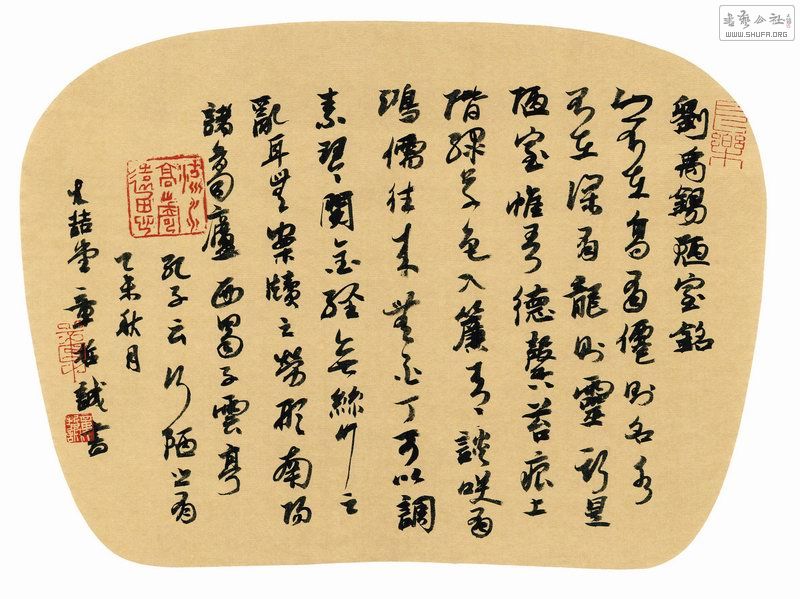 劉禹錫陋室銘
山不在高有僊則名水
不在深有龍則靈斯是
陋室惟吾德馨苔痕上
階綠草色入簾青談咲有
鴻儒往來無白丁可以調
素琴閱金經無絲竹之
亂耳無案牘之勞形南陽
諸葛廬西蜀子雲亭
孔子云何陋之有
乙未秋月
堂章哲誠書
長樂
WWW.SHUFA.ORG